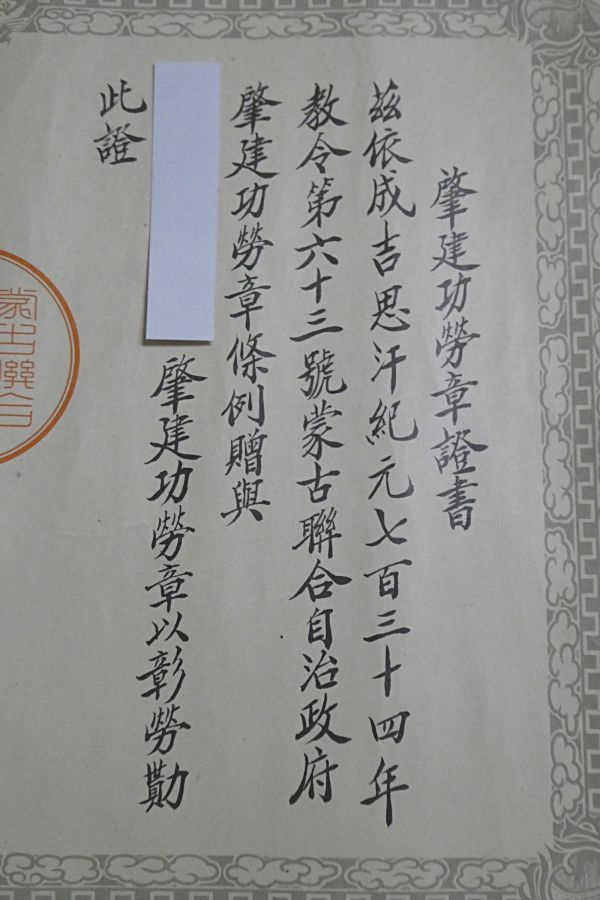 肇建功勞章證書
茲依成吉思汗紀元七百三十四年
教令第六十三號蒙古聯合自治政府
肇建功勞章條例贈與
肇建功勞章以彰勞勩
此證